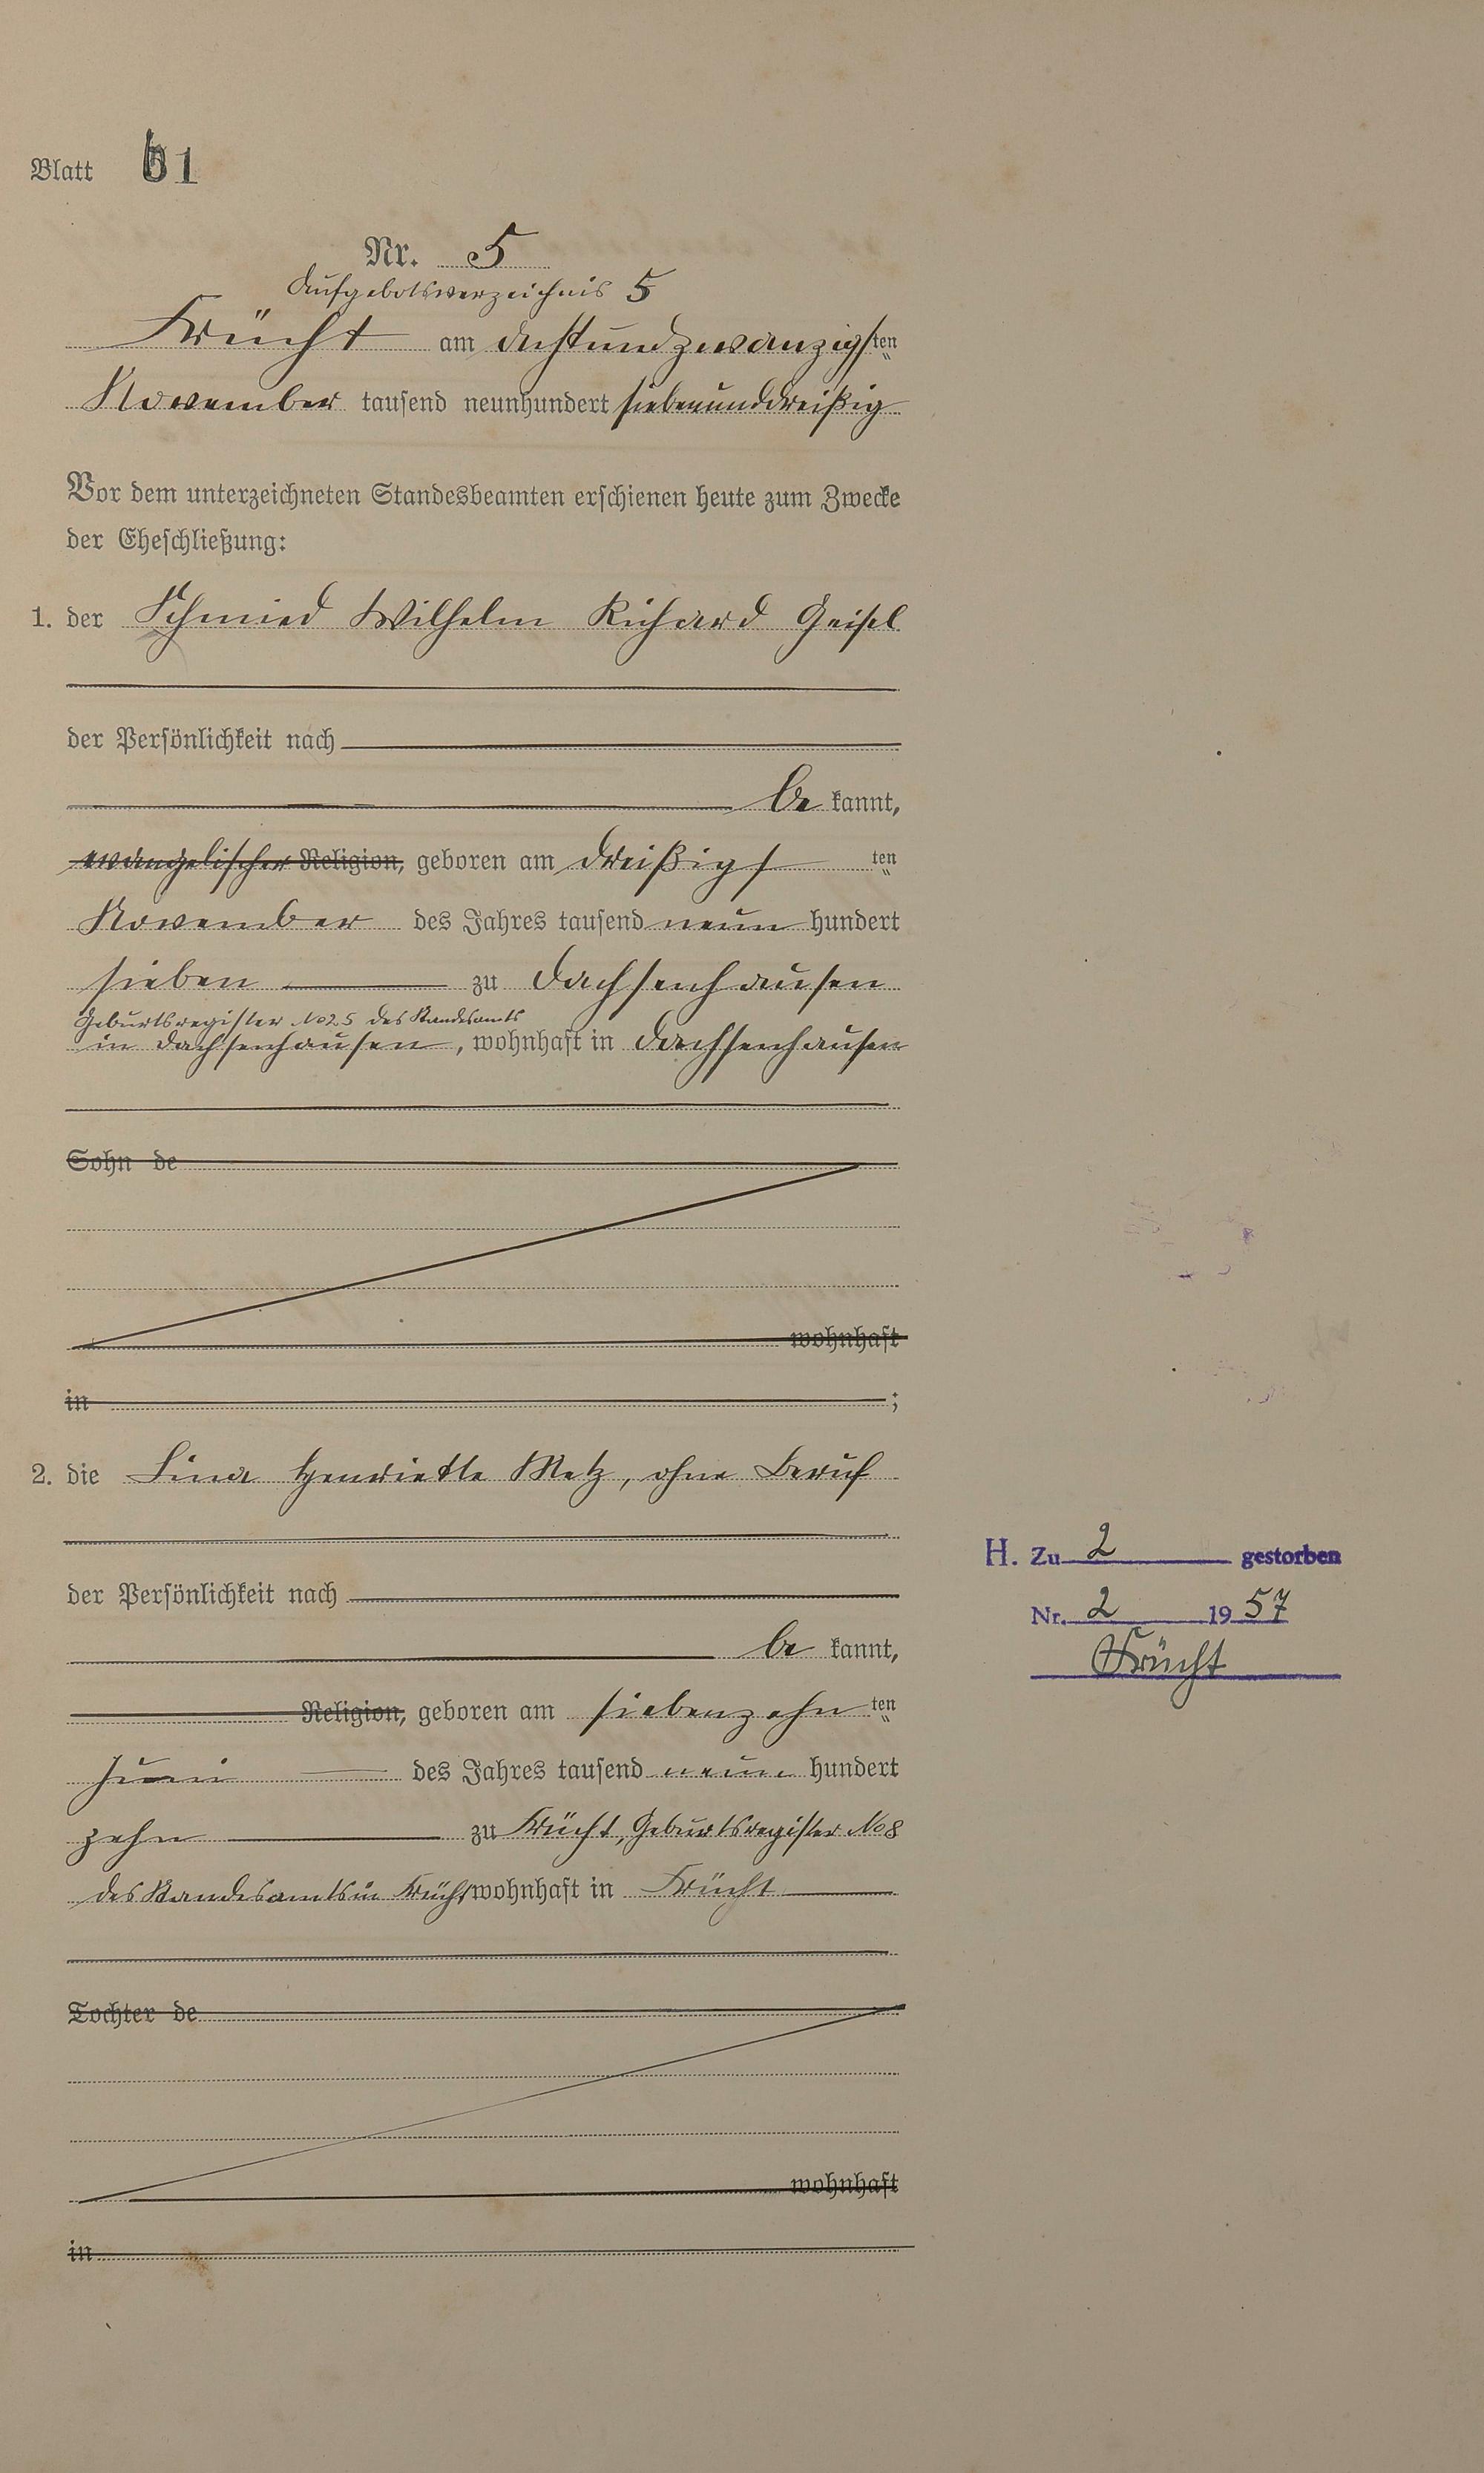 Blatt 61
Nr. 5
Aufgebotsverzeichnis 5
Frücht am achtundzwanzigsten
November tausend neunhundert siebenunddreißig
Vor dem unterzeichneten Standesbeamten erschienen heute zum Zwecke
der Eheschließung:
1. der Schmied Wilhelm Richard Geisel
der Persönlichkeit nach
be kannt,
evangelischer Religion, geboren am dreißigsten
November des Jahres tausend neun hundert
sieben zu Dachsenhausen
Geburtsregister No 25 des Standesamts
in Dachsenhausen, wohnhaft in Dachsenhausen
Sohn de
wohnhaft
in ;
2. die Lina Henriette Metz, ohne Beruf
der Persönlichkeit nach
be kannt,
Religion, geboren am siebenzehnten
Juni des Jahres tausend neun hundert
zehn zu Frücht, Geburtsregister No 8
des Standesamts in Frücht wohnhaft in Frücht
Tochter de
wohnhaft
in
H. Zu 2 gestorben
Nr. 2 1957
Frücht